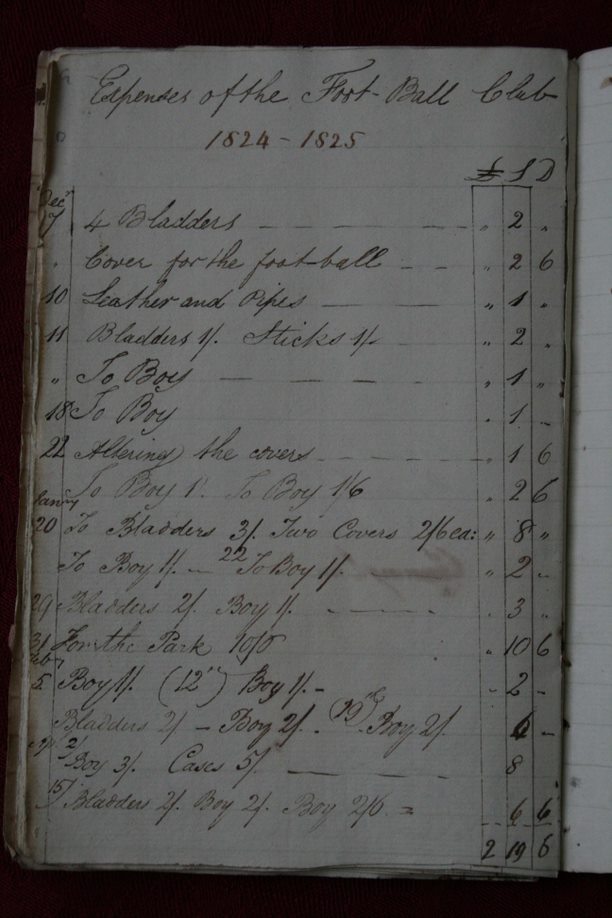 Expenses of the Foot-Ball Club
1824 - 1825
£ S D
Decr
7 4 Bladders — — — — " 2 "
" Cover for the foot-ball — — " 2 6
10 Leather and Pipes — — — " 1 "
11 Bladders 1/. Sticks 1/. — " 2 "
" To Boy — — — — " 1 "
18 To Boy " 1 -
22 Altering the covers — — — — " 1 6
To Boy 1/. To Boy 1/6 " 2 6
Janry
20 To Bladders 3/. Two Covers 2/6 ea: " 8 "
To Boy 1/. — 22 To Boy 1/. " 2 -
29 Bladders 2/. Boy 1/. — — — 3 "
31 For the Park 10/6 " 10 6
Feby
5 Boy 1/. (12") Boy 1/. - - 2 -
Bladders 2/ — Boy 2/. Boy 2/. 6 -
2
Boy 3/. Cases 5/. — — — — 8
15 Bladders 2/. Boy 2/. Boy 2/6 = 6 6
2 19 6